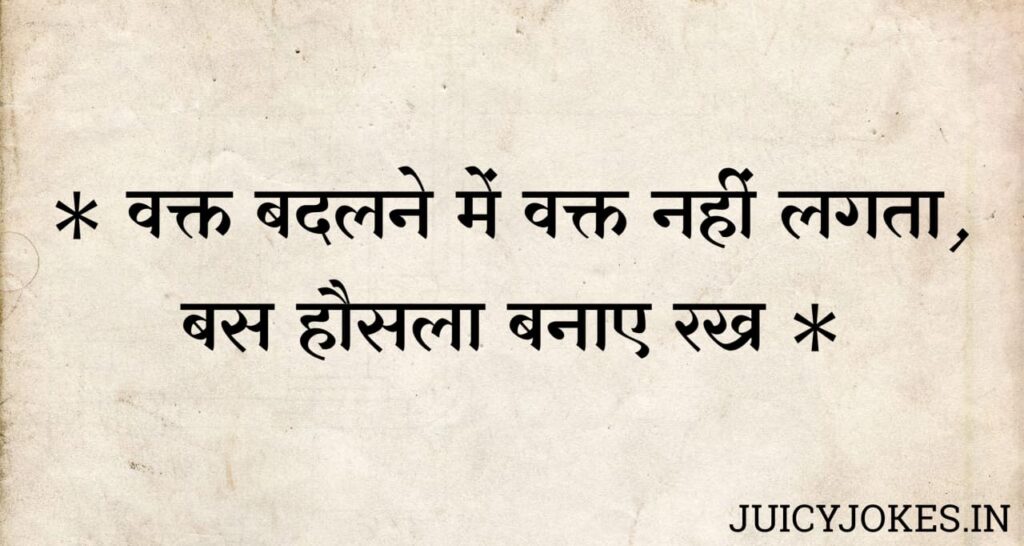 * वक्त बदलने में वक्त नहीं लगता,
बस हौसला बनाए रख *
JUICYJOKES.IN